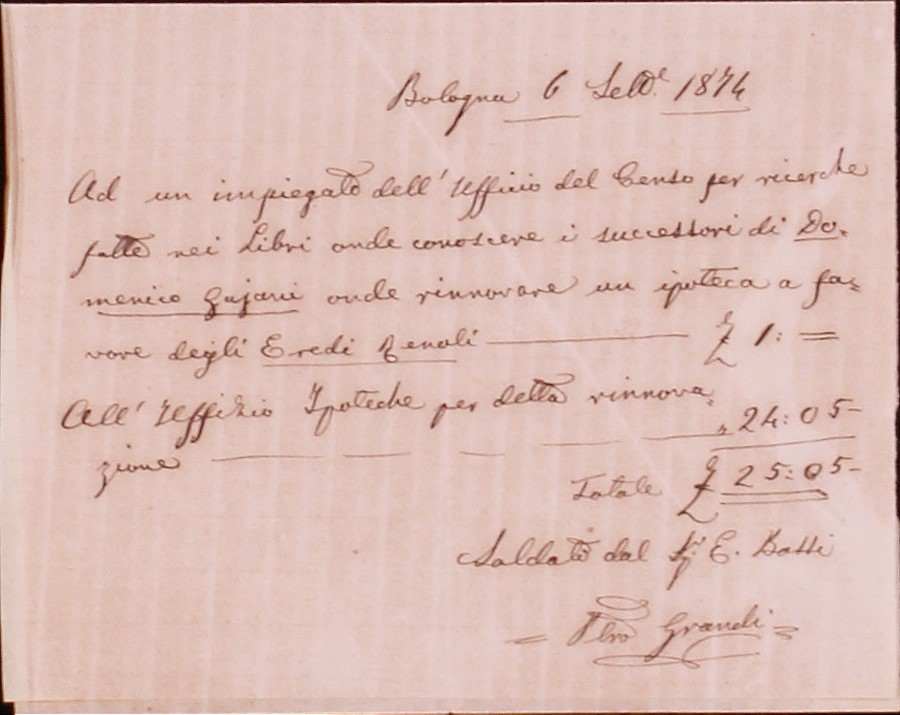 Bologna 6 Sett.e 1874
Ad un impiegato dell' Ufficio del Censo per ricerche
fatte nei Libri onde conoscere i successori di Do-
menico onde rinnovare un ipoteca a fa-
vore degli Eredi £ 1: =
All' Uffizio Ipoteche per detta rinnova-
zione „ 24:05-
Totale £ 25:05-
Saldato dal Sr. E. Bassi
Grandi